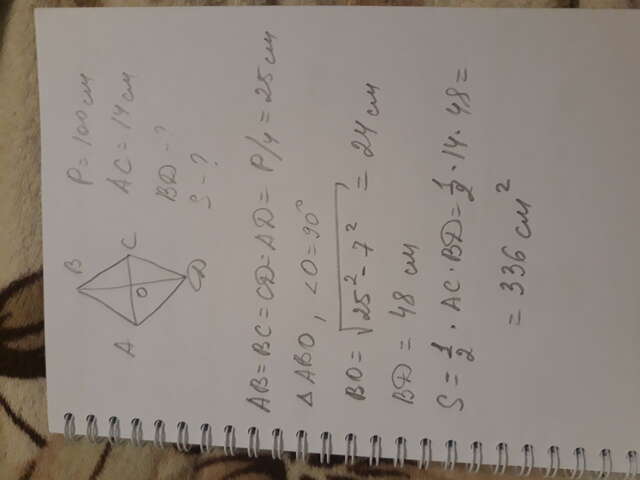 P = 100 см
AC = 14 см
BD - ?
S - ?
B
A
C
O
D
AB = BC = CD = AD = P/4 = 25 см
△ ABO, ∠O = 90°
BO = √25² - 7² = 24 см
BD = 48 см
S = 1/2 · AC · BD = 1/2 · 14 · 48 =
= 336 см²